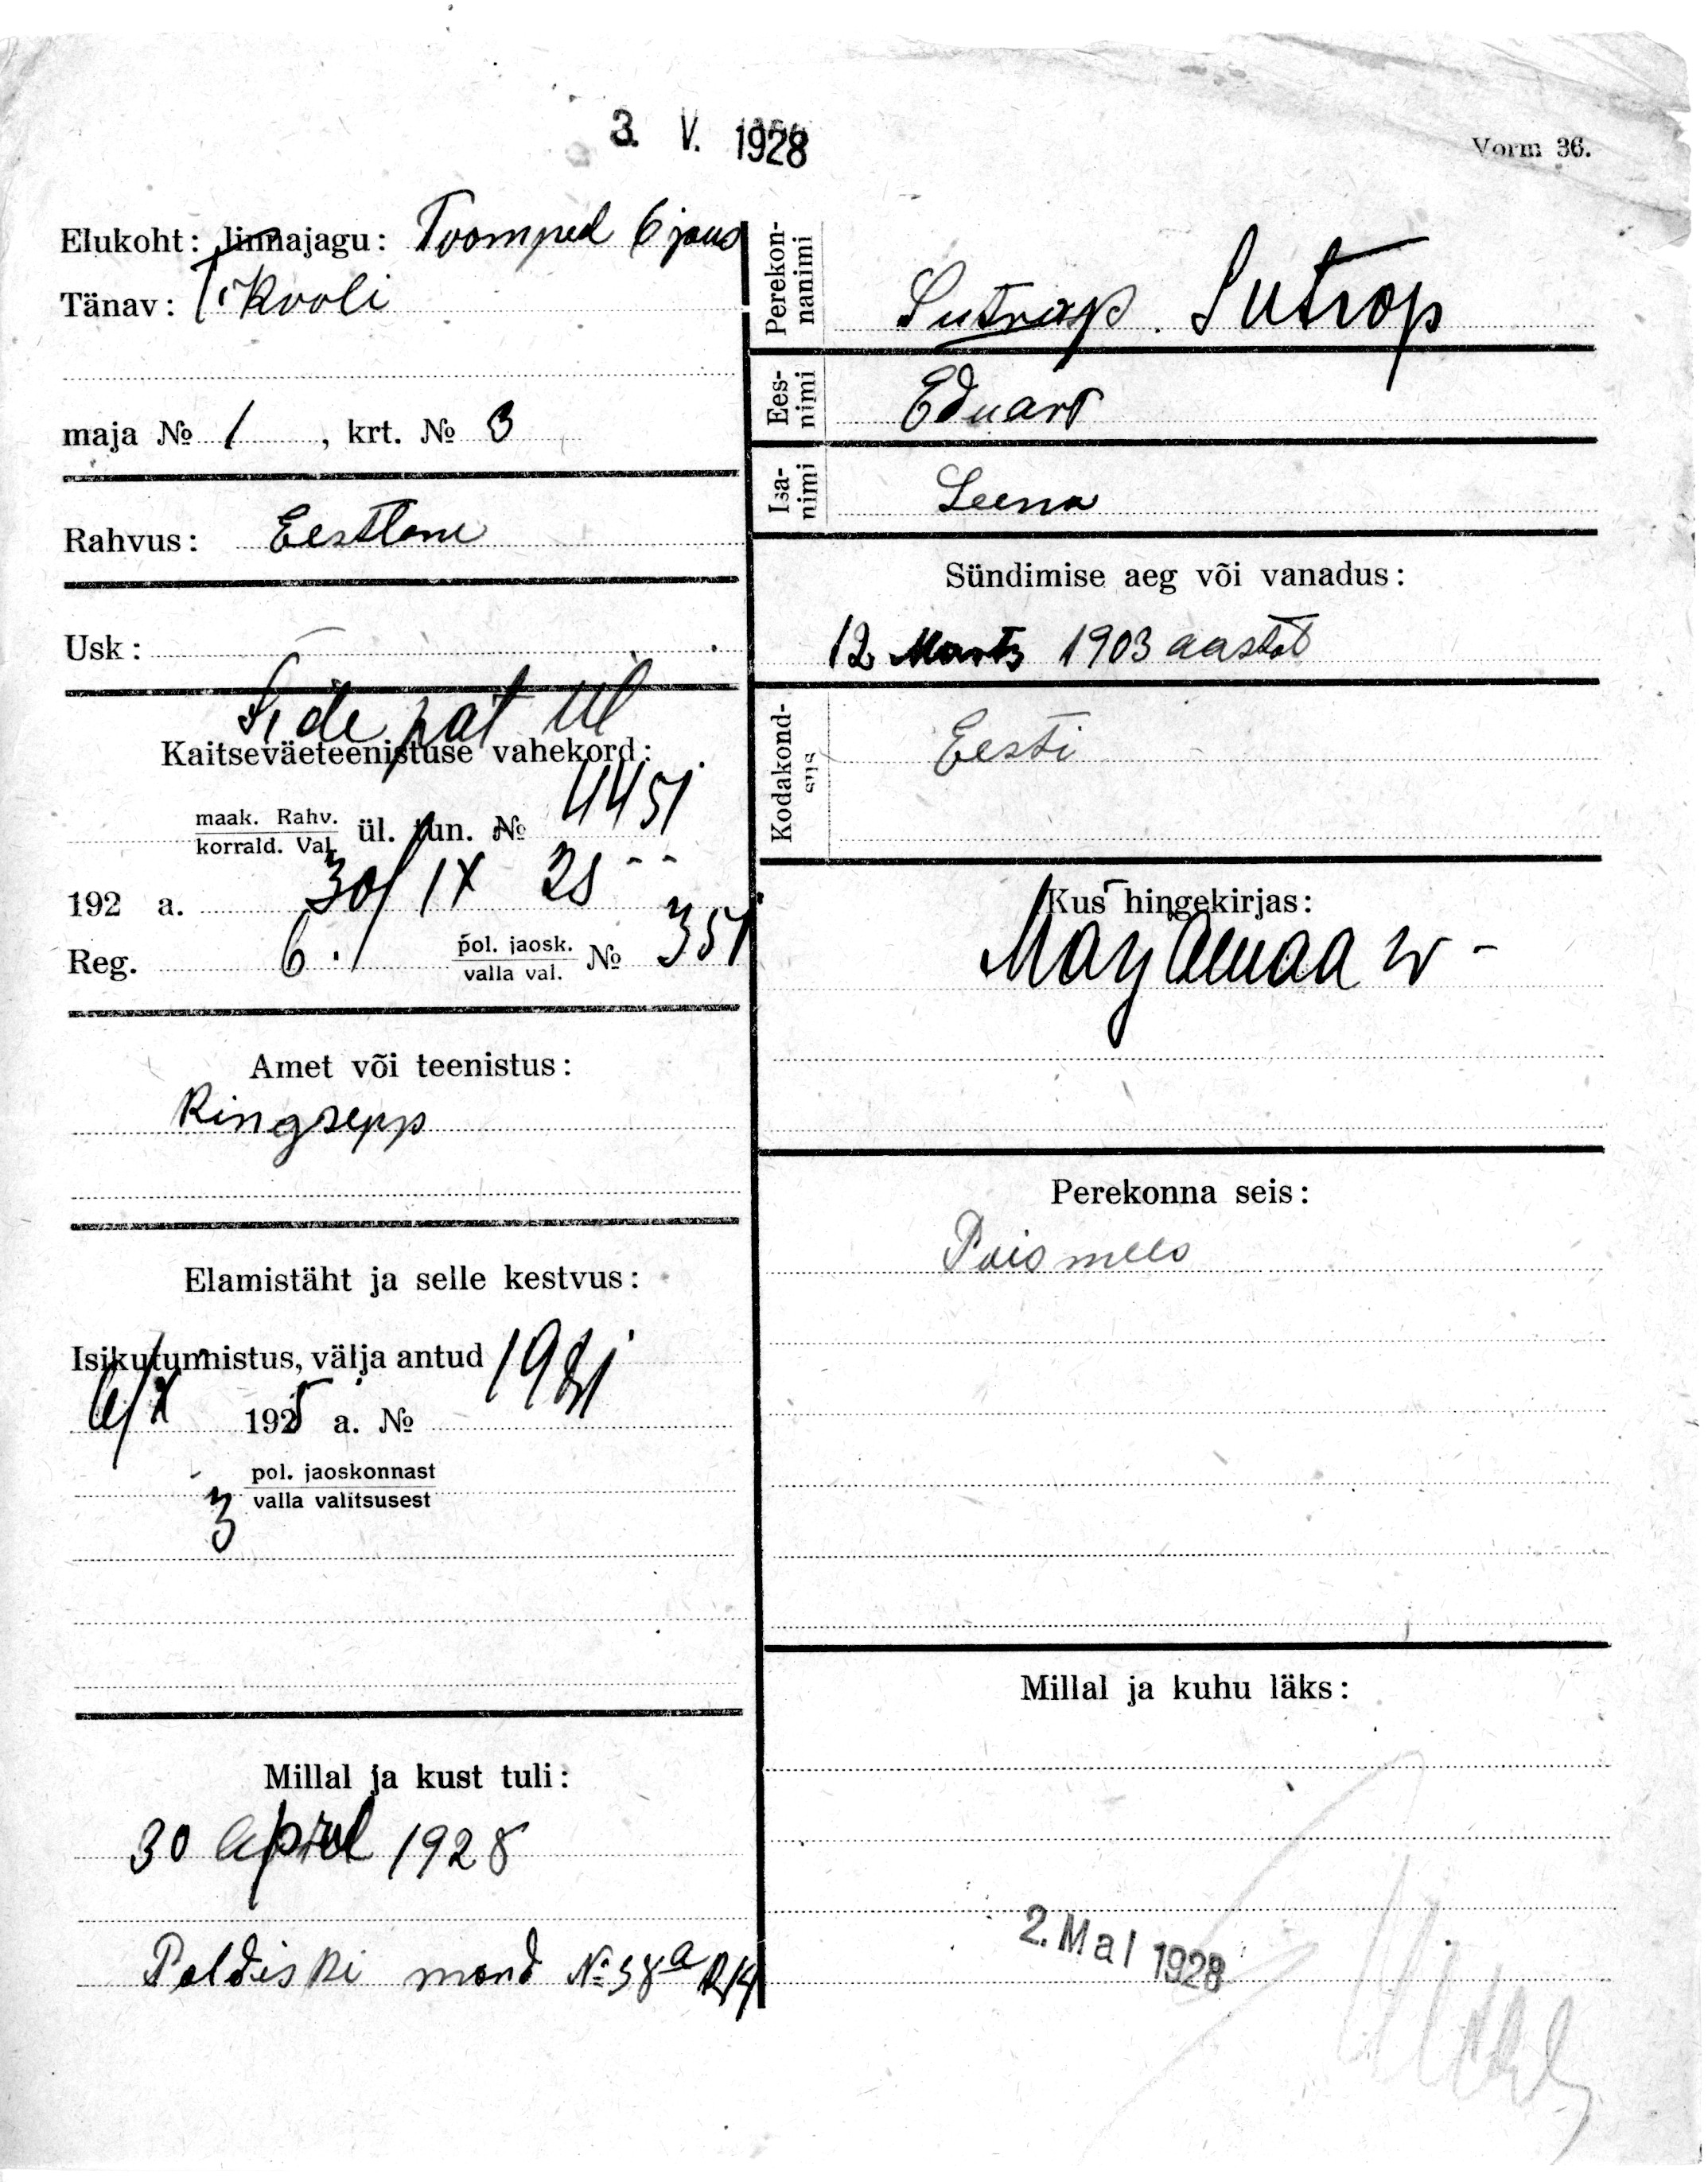 3. V. 1928
Vorm 36.
Elukoht: linnajagu: Toompea 6 jaos
Tänav: T. Kooli
maja № 1, krt. № 3
Rahvus: Eestlane
Usk: —
Side pat
Kaitseväeteenistuse vahekord:
maak. Rahv. korrald. Val. ül. tun. № 4451
192 a. 30/IX 25
Reg. 6. pol. jaosk. valla val. № 351
Amet või teenistus:
Kingsepp
Elamistäht ja selle kestvus:
Isikutunnistus, välja antud
6/X 1925 a. №
3 pol. jaoskonnast
valla valitsusest
Millal ja kust tuli:
30 April 1928
Paldiski mand № 38a
Perekonnanimi Sutrop. Sutrop
Eesnimi Eduard
Isanimi Leena
Sündimise aeg või vanadus:
12 Marts 1903 aastal
Kodakondsus Eesti
Kus hingekirjas:
Marjamaa w
Perekonna seis:
Poismees
Millal ja kuhu läks:
2. Mai 1928